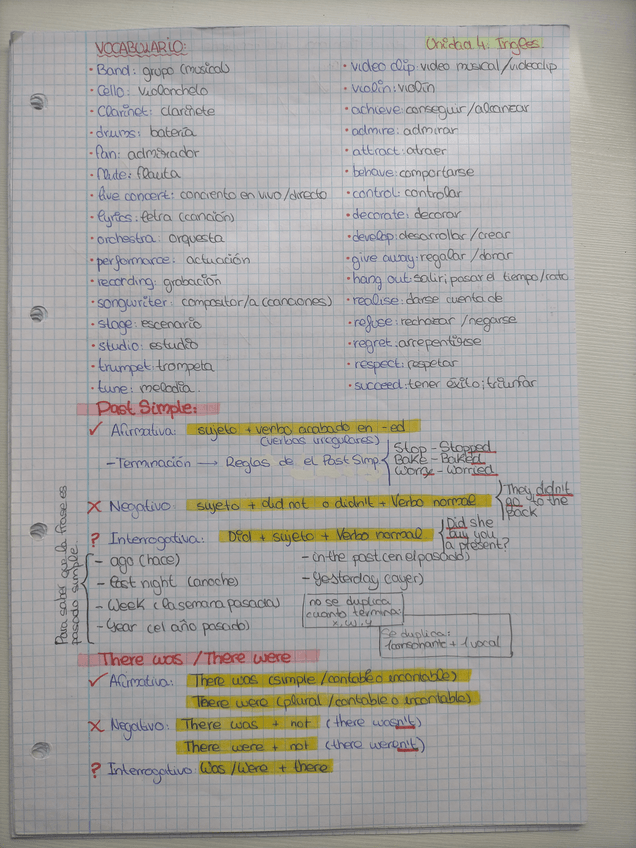 VOCABULARIO:
Unidad 4. Ingles.
· Band: grupo (musical)
· Cello: violonchelo
· Clarinet: clarinete
· drums: batería
· fan: admirador
· flute: flauta
· live concert: conciento en vivo/directo
· lyrics: letra (canción)
· orchestra: orquesta
· performance: actuación
· recording: grabación
· songwriter: compositor/a (canciones)
· stage: escenario
· studio: estudio
· trumpet: trompeta
· tune: melodía.
· video clip: video musical/videoclip
· violin: violín
· achieve: conseguir/alcanzar
· admire: admirar
· attract: atraer
· behave: comportarse
· control: controlar
· decorate: decorar
· develop: desarrollar/crear
· give away: regalar/donar
· hang out: salir; pasar el tiempo/rato
· realise: darse cuenta de
· refuse: rechazar/negarse
· regret: arrepentirse
· respect: respetar
· succeed: tener éxito; triunfar
Past Simple:
✓ Afirmativa: sujeto + verbo acabado en -ed
(verbos irregulares)
- Terminación → Reglas de el Past Simp.
Stop - Stopped
Bake - Baked
Worry - Worried
X Negativo: sujeto + did not o didn't + Verbo normal
They didn't
go to the
? Interrogativa: Did + sujeto + Verbo normal
Did she
buy you
a present?
Para saber que la frase es
pasado simple
- ago (hace)
- Last night (anoche)
- Week (la semana pasada)
- Year (el año pasado)
- in the past (en el pasado)
- Yesterday (ayer)
no se duplica
cuanto termina:
x, w, y
Se duplica:
1 consonante + 1 vocal
There was / There were
✓ Afirmativa: There was (simple/contable o incontable)
There were (plural/contable o incontable)
X Negativo: There was + not (there wasn't)
There were + not (there weren't)
? Interrogativo Was/Were + there